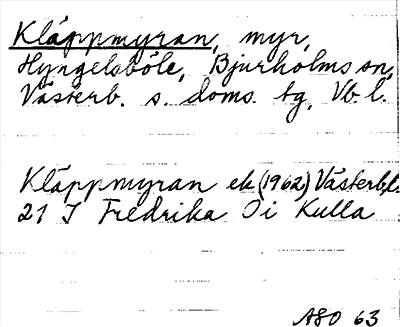 Kläppmyran, myr,
Hyngelsböle, Bjurholms sn,
Västerb. s. doms. tg, Vb. l.
Kläppmyran ek (1962) Västerb.l.
21 I Fredrika Ö i Kulla
ASO 63